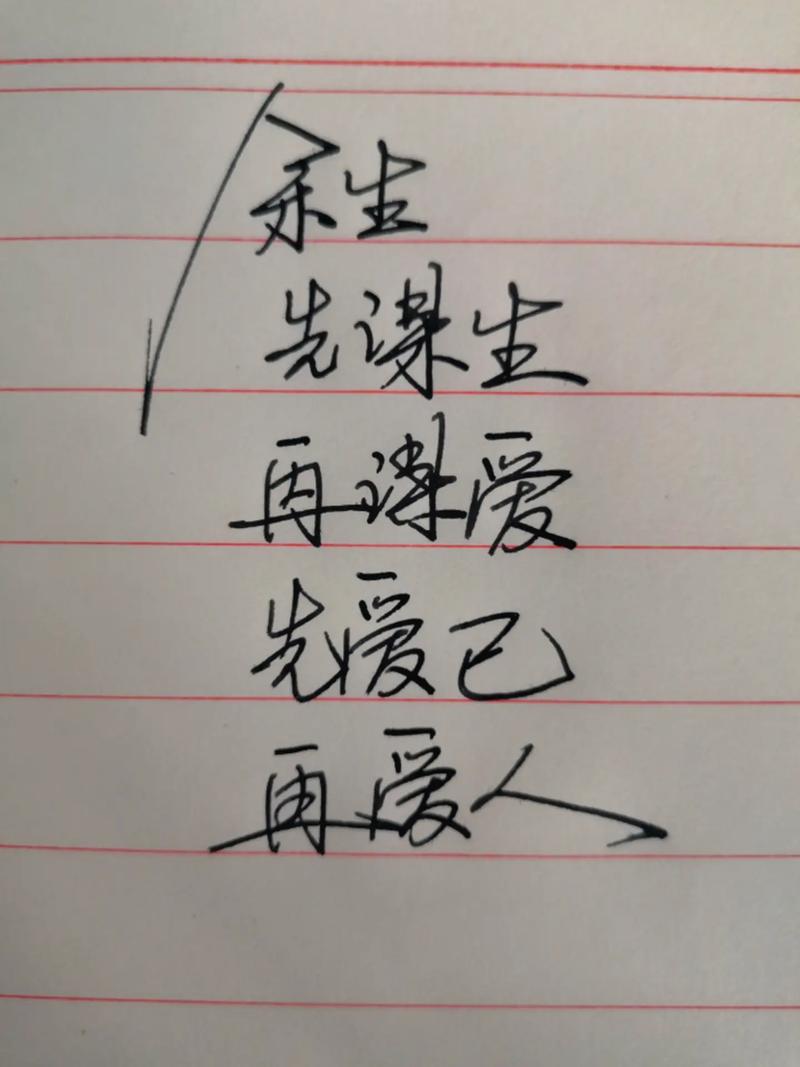 余生
先谋生
再谋爱
先爱己
再爱人